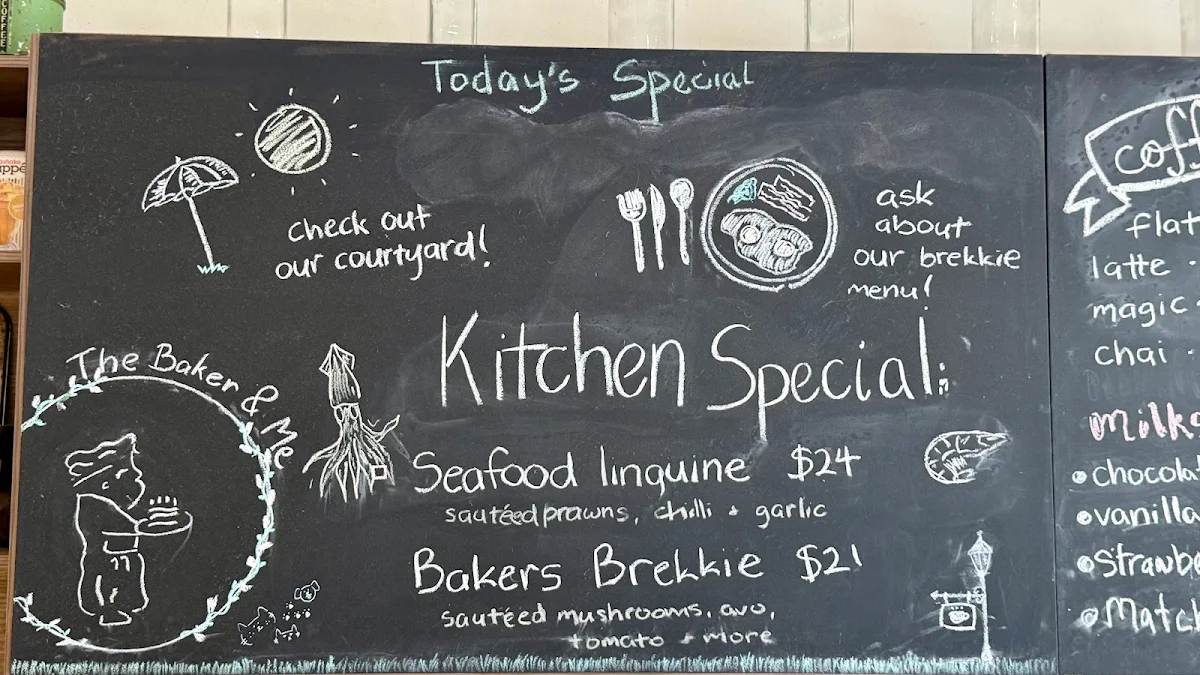 COFFEE
Today's Special
check out
our courtyard!
ask
about
our brekkie
menu!
The Baker & Me
Kitchen Special:
Seafood linguine $24
sautéed prawns, chilli + garlic
Bakers Brekkie $21
sautéed mushrooms, avo,
tomato + more
coff
flat
latte ·
magic
chai ·
milks
chocola
vanilla
Strawbe
Match